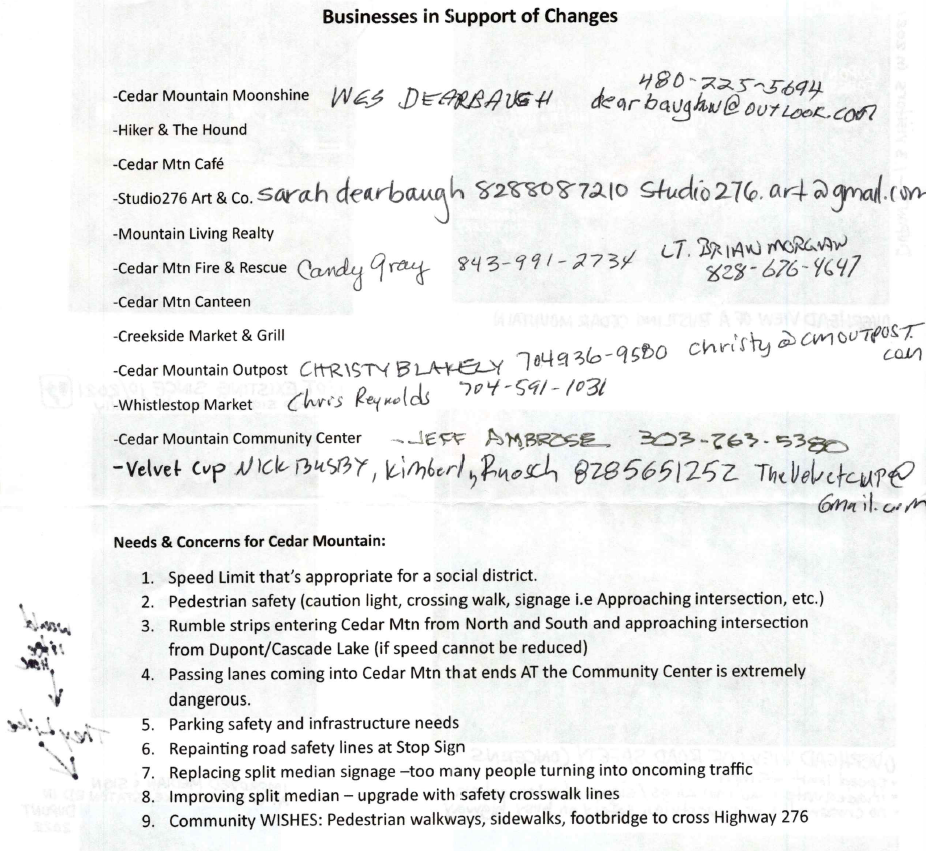 Businesses in Support of Changes
480-225-5694
-Cedar Mountain Moonshine WES DEARBAUGH dearbaughw@outlook.com
-Hiker & The Hound
-Cedar Mtn Café
-Studio276 Art & Co. sarah dearbaugh 8288087210 Studio276.art@gmail.com
-Mountain Living Realty
-Cedar Mtn Fire & Rescue Candy Gray 843-991-2734 LT. BRIAN MORGAN
828-676-4647
-Cedar Mtn Canteen
-Creekside Market & Grill
-Cedar Mountain Outpost CHRISTY BLAKELY 704936-9580 christy@cmoutpost.
com
-Whistlestop Market Chris Reynolds 704-591-1031
-Cedar Mountain Community Center -JEFF AMBROSE 303-263-5380
-Velvet Cup NICK BUSBY, Kimberly 8285651252 TheVelvetcup@
Gmail.com
Needs & Concerns for Cedar Mountain:
1. Speed Limit that's appropriate for a social district.
2. Pedestrian safety (caution light, crossing walk, signage i.e Approaching intersection, etc.)
3. Rumble strips entering Cedar Mtn from North and South and approaching intersection
from Dupont/Cascade Lake (if speed cannot be reduced)
4. Passing lanes coming into Cedar Mtn that ends AT the Community Center is extremely
dangerous.
5. Parking safety and infrastructure needs
6. Repainting road safety lines at Stop Sign
7. Replacing split median signage –too many people turning into oncoming traffic
8. Improving split median – upgrade with safety crosswalk lines
9. Community WISHES: Pedestrian walkways, sidewalks, footbridge to cross Highway 276